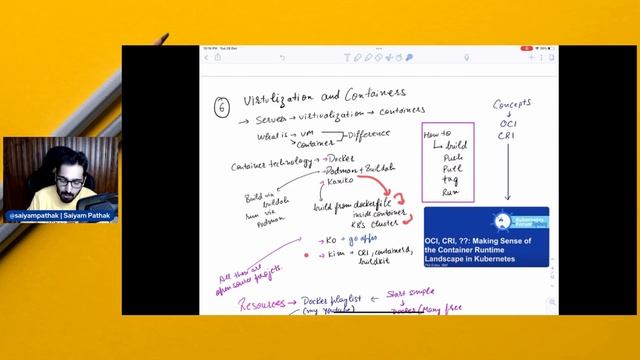 10:16 PM Tue 28 Dec
6 Virtulization and Containers
→ Servers → virtualization → containers
What is → VM
→ Container
Difference
Container technology → Docker
→ Podman + Buildah
→ Kaniko
Build via
buildah
run via
Podman
build from dockerfile
inside container
K8s cluster
→ Ko + go apps
→ Kim → CRI, containerd,
buildkit
All these are
open source projects.
How to
build
Push
Pull
tag
Run
Concepts
OCI
CRI
Kubernetes
Forum
OCI, CRI, ??: Making Sense of
the Container Runtime
Landscape in Kubernetes
Resources → Docker playlist ← Start simple
(my youtube)
Docker (Many free
@saiyampathak | Saiyam Pathak